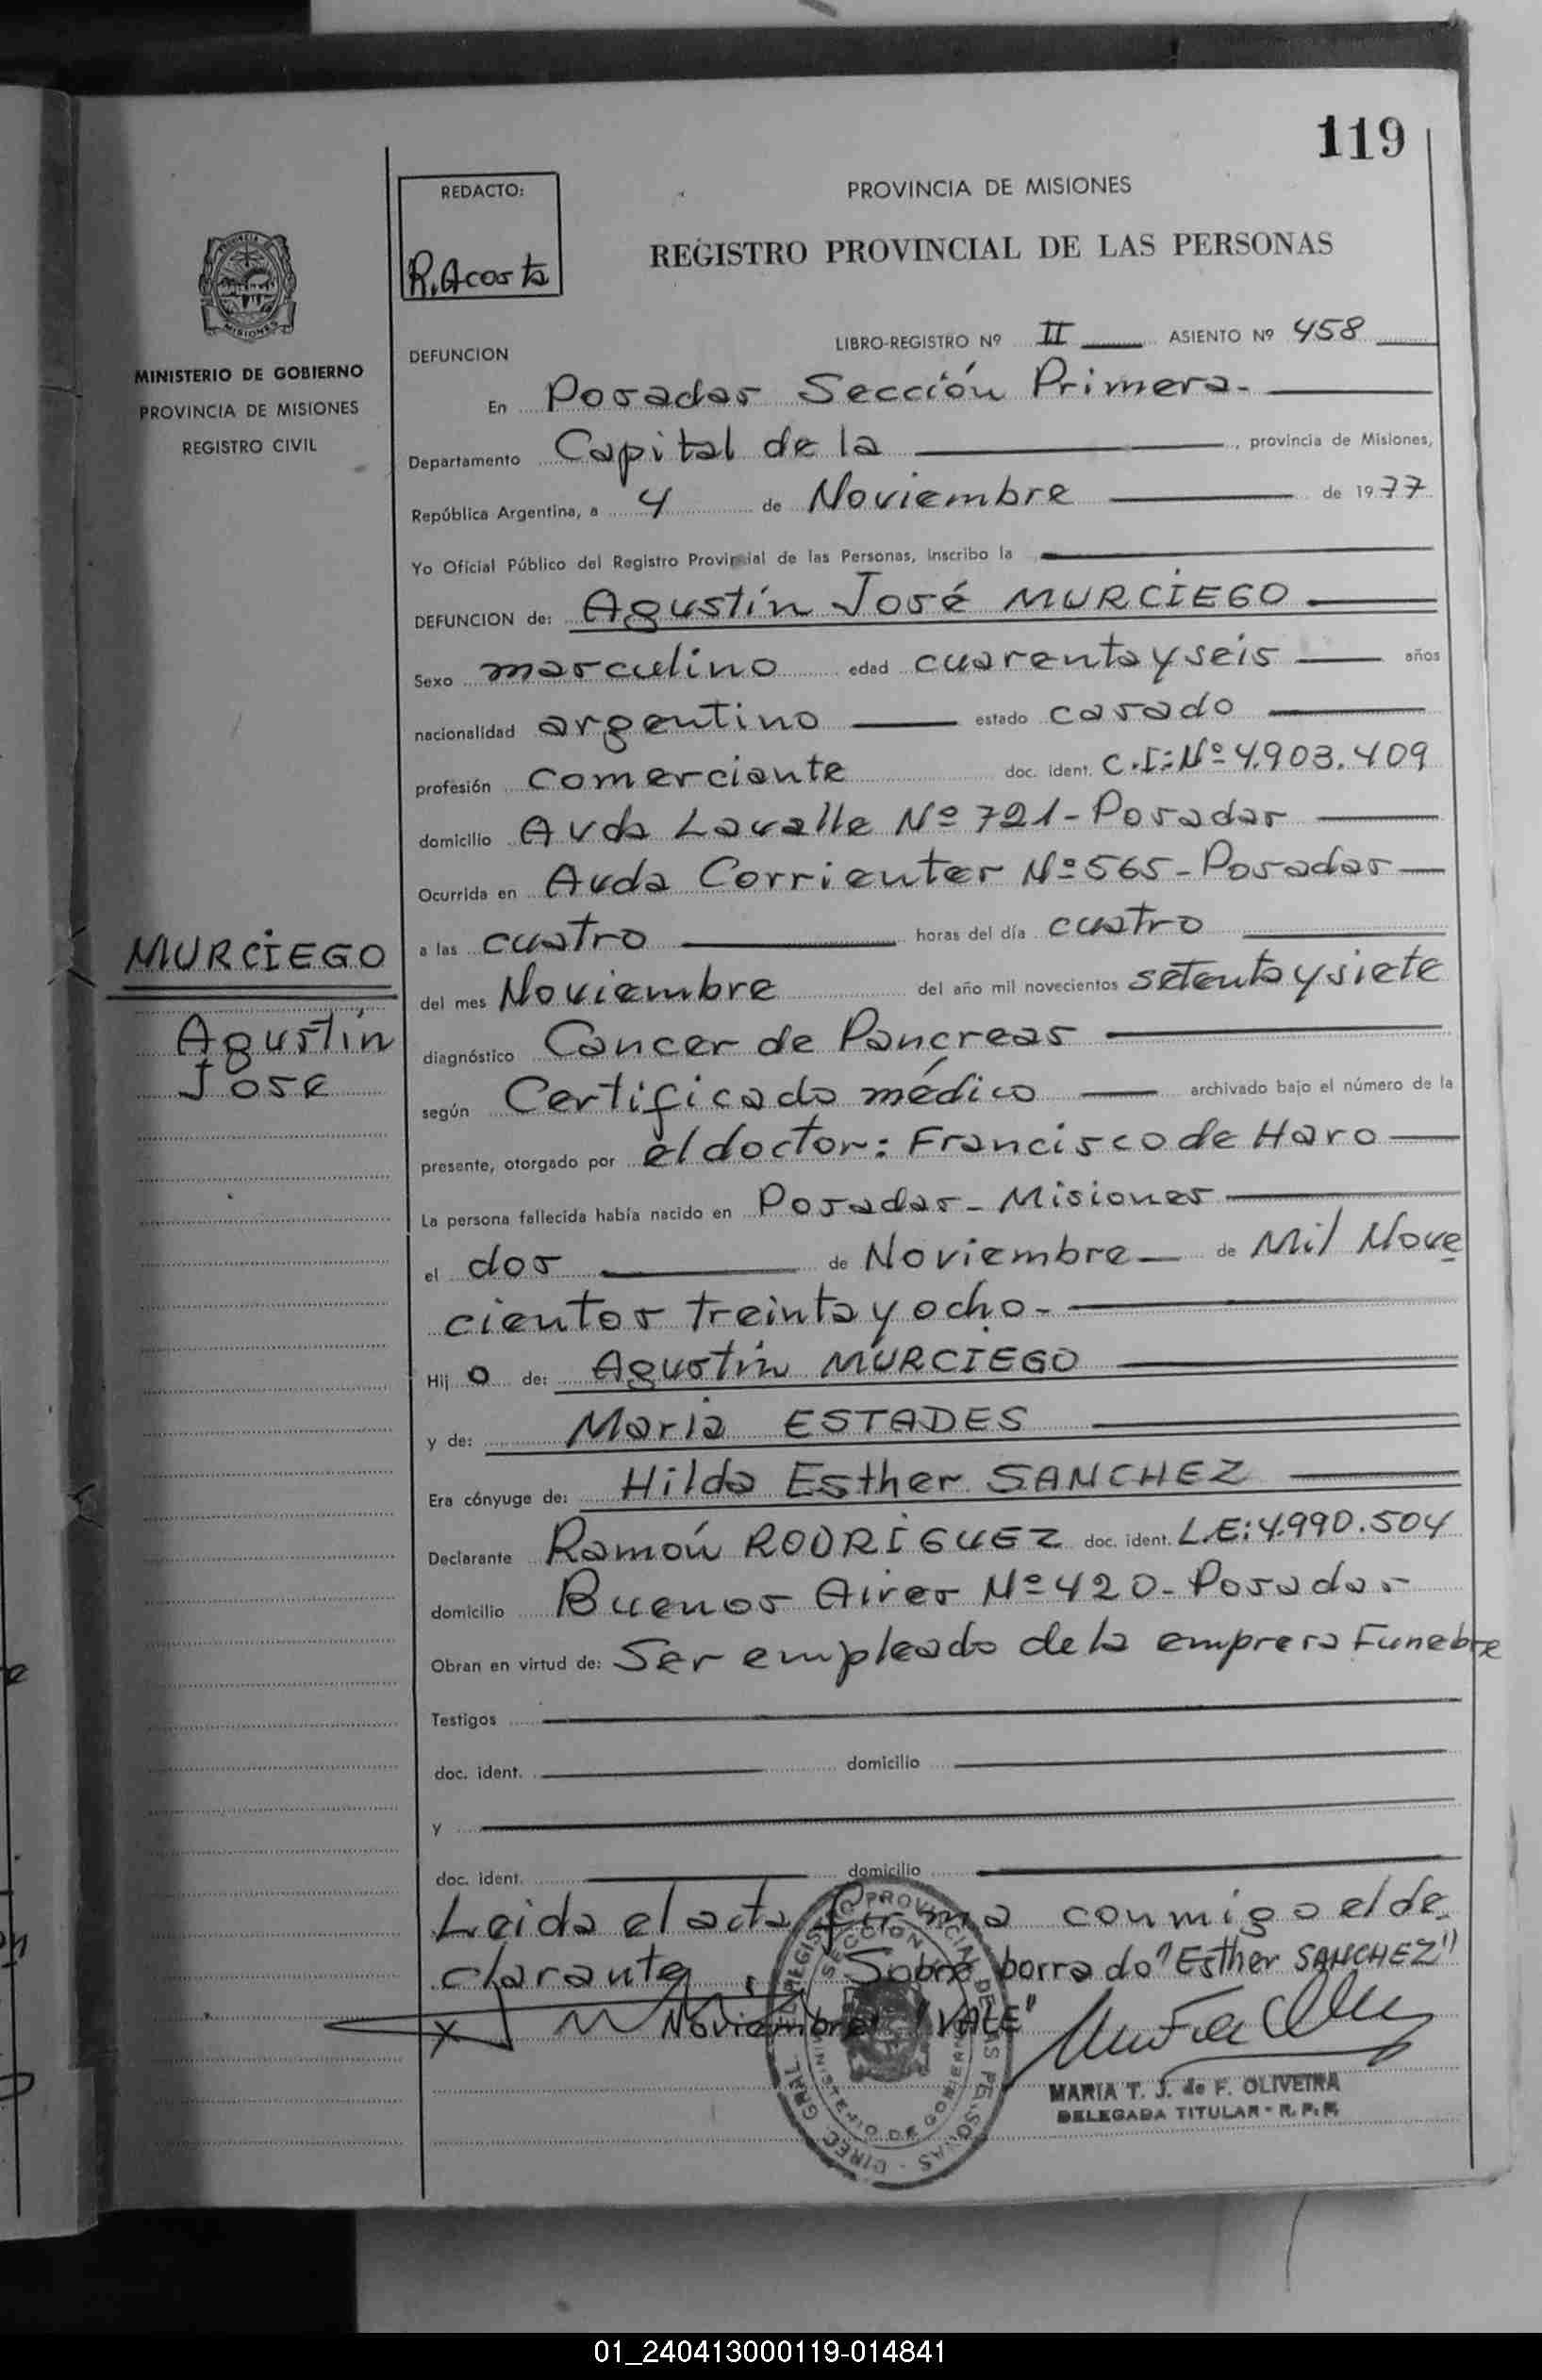 119
REDACTO:
R. Acosta
PROVINCIA DE MISIONES
REGISTRO PROVINCIAL DE LAS PERSONAS
MINISTERIO DE GOBIERNO
PROVINCIA DE MISIONES
REGISTRO CIVIL
DEFUNCION
LIBRO-REGISTRO Nº II ASIENTO Nº 458
En Posadas Sección Primera.
Departamento Capital de la , provincia de Misiones,
República Argentina, a 4 de Noviembre de 1977
Yo Oficial Público del Registro Provincial de las Personas, inscribo la
DEFUNCION de: Agustín José MURCIEGO
Sexo masculino edad cuarenta y seis años
nacionalidad argentino estado casado
profesión comerciante doc. ident. C.I: Nº 4.903.409
domicilio Avda Lavalle Nº 721 - Posadas
Ocurrida en Avda Corrientes Nº 565 - Posadas
MURCIEGO
Agustín
José
a las cuatro horas del día cuatro
del mes Noviembre del año mil novecientos setenta y siete
diagnóstico Cancer de Páncreas
según Certificado médico archivado bajo el número de la
presente, otorgado por el doctor: Francisco de Haro
La persona fallecida había nacido en Posadas - Misiones
el dos de Noviembre de Mil Nove
cientos treinta y ocho -
Hij o de: Agustín MURCIEGO
y de: Maria ESTADES
Era cónyuge de: Hilda Esther SANCHEZ
Declarante Ramón RODRIGUEZ doc. ident. L.E: 4.990.504
domicilio Buenos Aires Nº 420 - Posadas
Obran en virtud de: Ser empleado de la empresa Funebre
Testigos
doc. ident. domicilio
y
doc. ident. domicilio
Leida el acta firma conmigo el de-
clarante. Sobre borrado "Esther SANCHEZ"
Noviembre "VALE"
MARIA T. J. de F. OLIVEIRA
DELEGADA TITULAR - R. P. P.
01_240413000119-014841